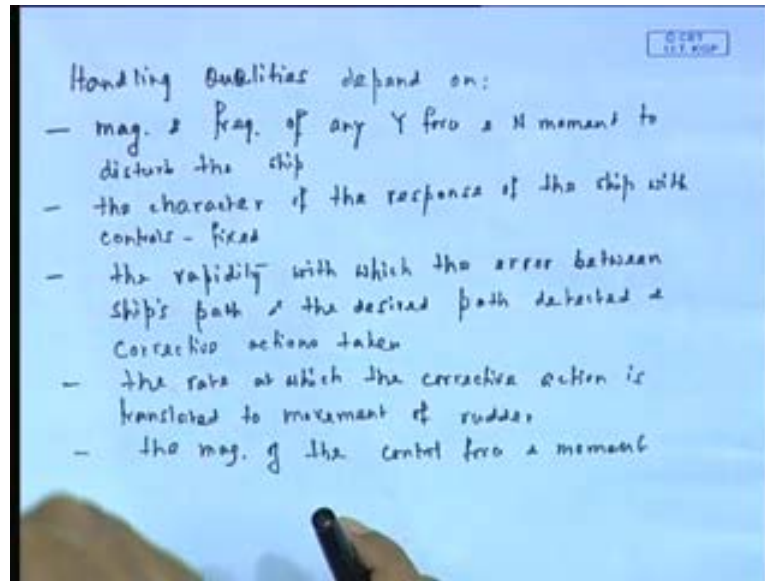 © CET
I.I.T. KGP
Handling Qualities depend on:
- mag. & freq. of any Y force & N moment to
disturb the ship
- the character of the response of the ship with
controls - fixed
- the rapidity with which the error between
ship's path & the desired path detected &
corrective actions taken
- the rate at which the corrective action is
translated to movement of rudder
- the mag. of the control force & moment